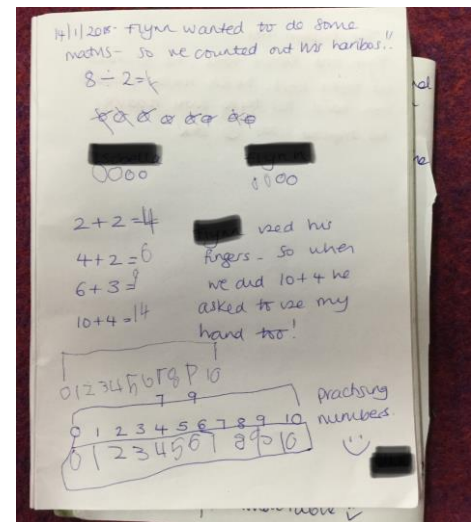 14/1/2018- Flynn wanted to do some
maths- so we counted out his haribos!!
8 ÷ 2 =
2+2=4
4+2=6
6+3=9
10+4=14
used his
fingers - so when
we did 10+4 he
asked to use my
hand too!
0 1 2 3 4 5 6 7 8 9 10
7 9
0 1 2 3 4 5 6 7 8 9 10
0 1 2 3 4 5 6 7 8 9 10
practising
numbers.